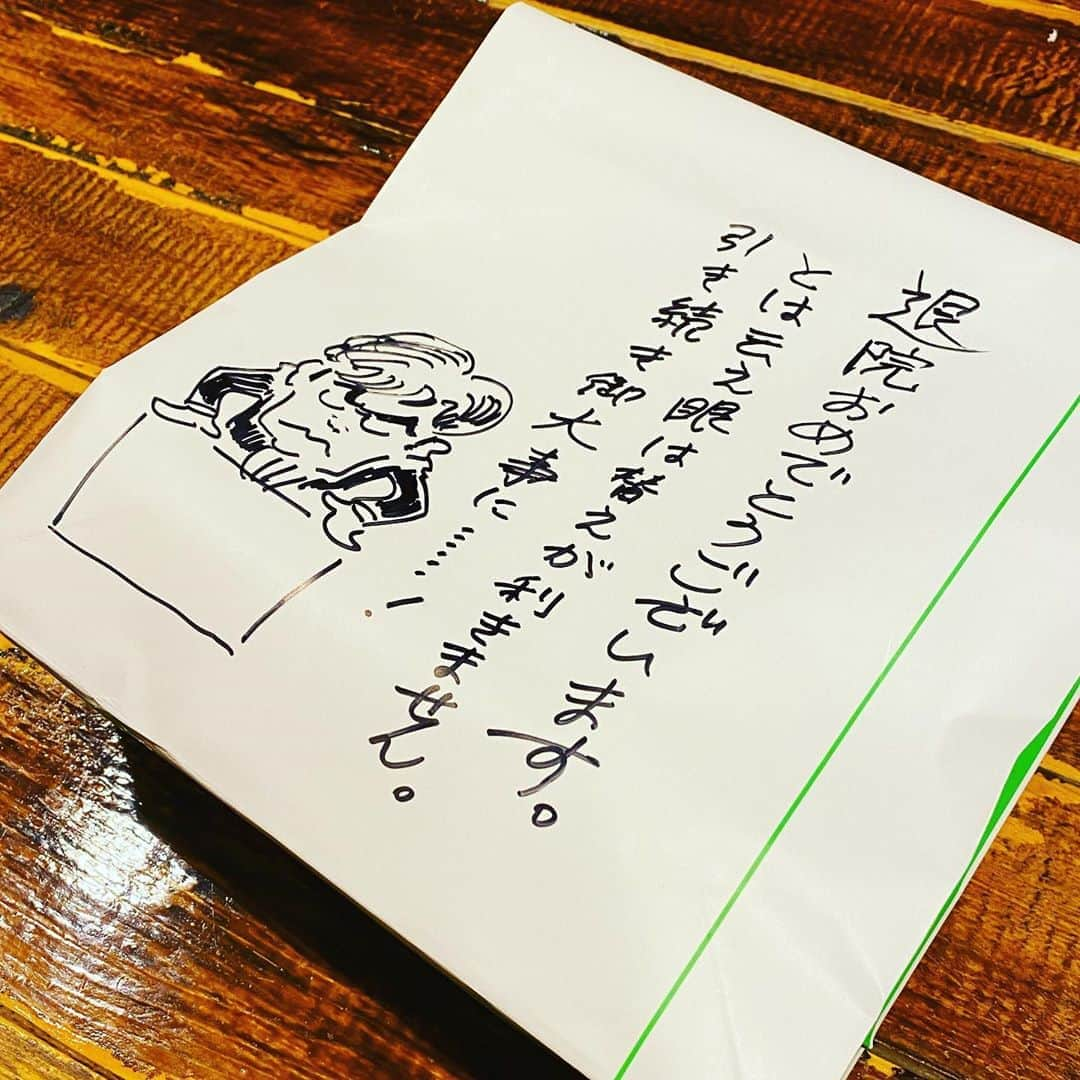 退院おめでとうございます。
とは云え眼は替えが利きません。
引き続き御大事に……!